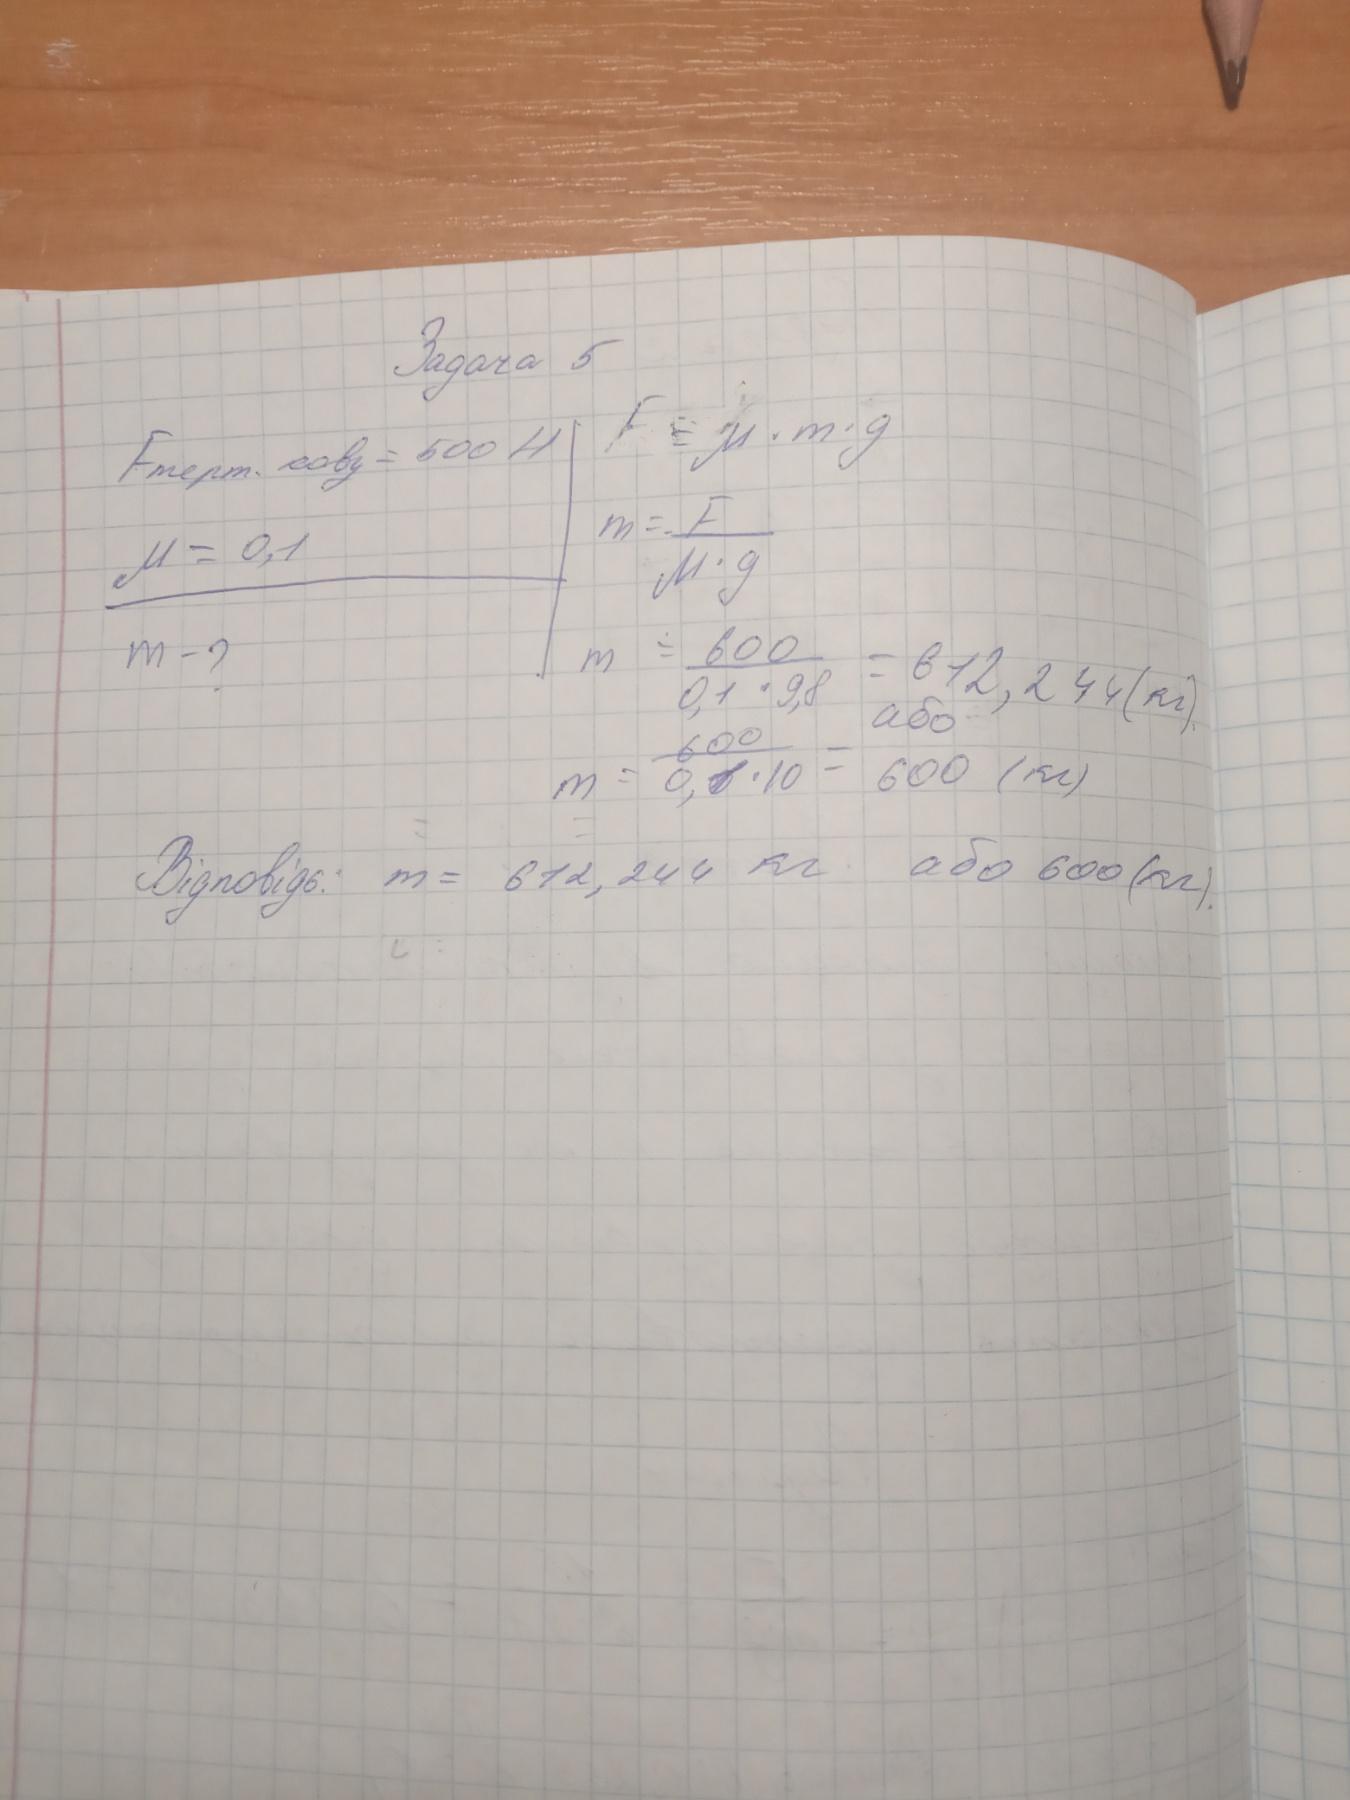 Задача 5
Fтерт. ковз = 500 Н
μ = 0,1
m - ?
F = μ · m · g
m = F / μ · g
m = 600 / 0,1 · 9,8 = 612,244 (кг).
або
m = 600 / 0,1 · 10 = 600 (кг)
Відповідь: m = 612,244 кг або 600 (кг).